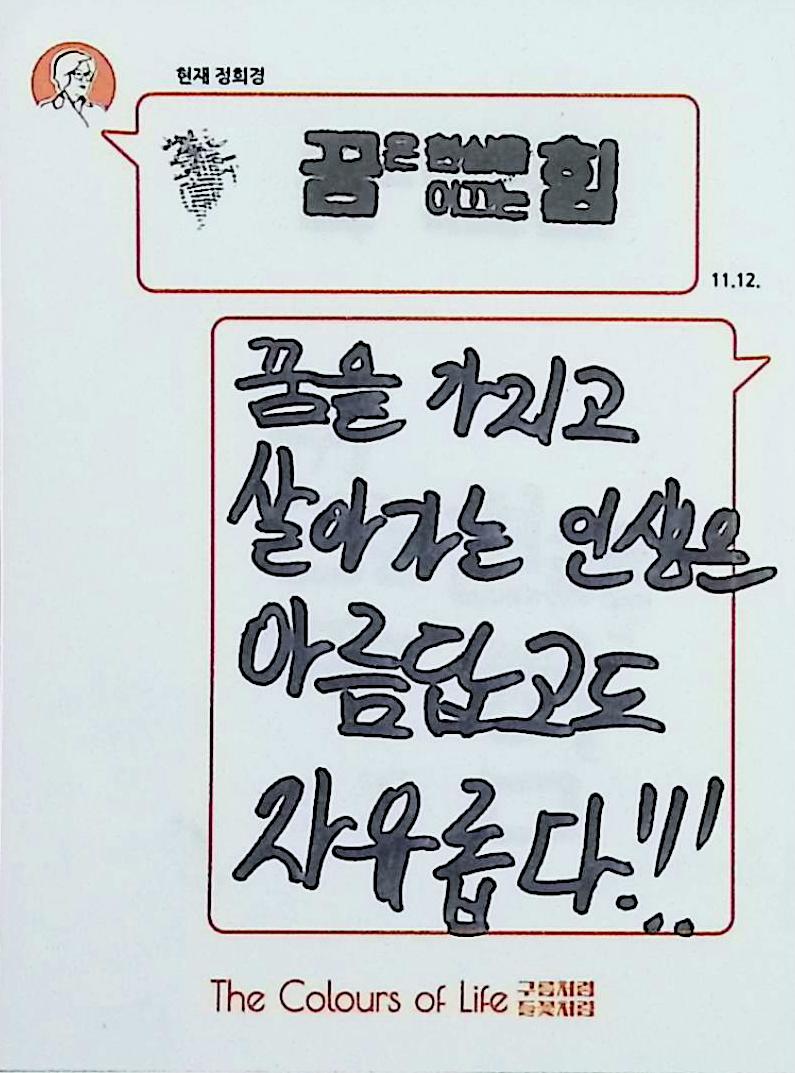 현재 정희경
꿈은 현실을
이끄는 힘
11.12.
꿈을 가지고
살아가는 인생은
아름답고도
자유롭다!!!
The Colours of Life 구름처럼
들꽃처럼